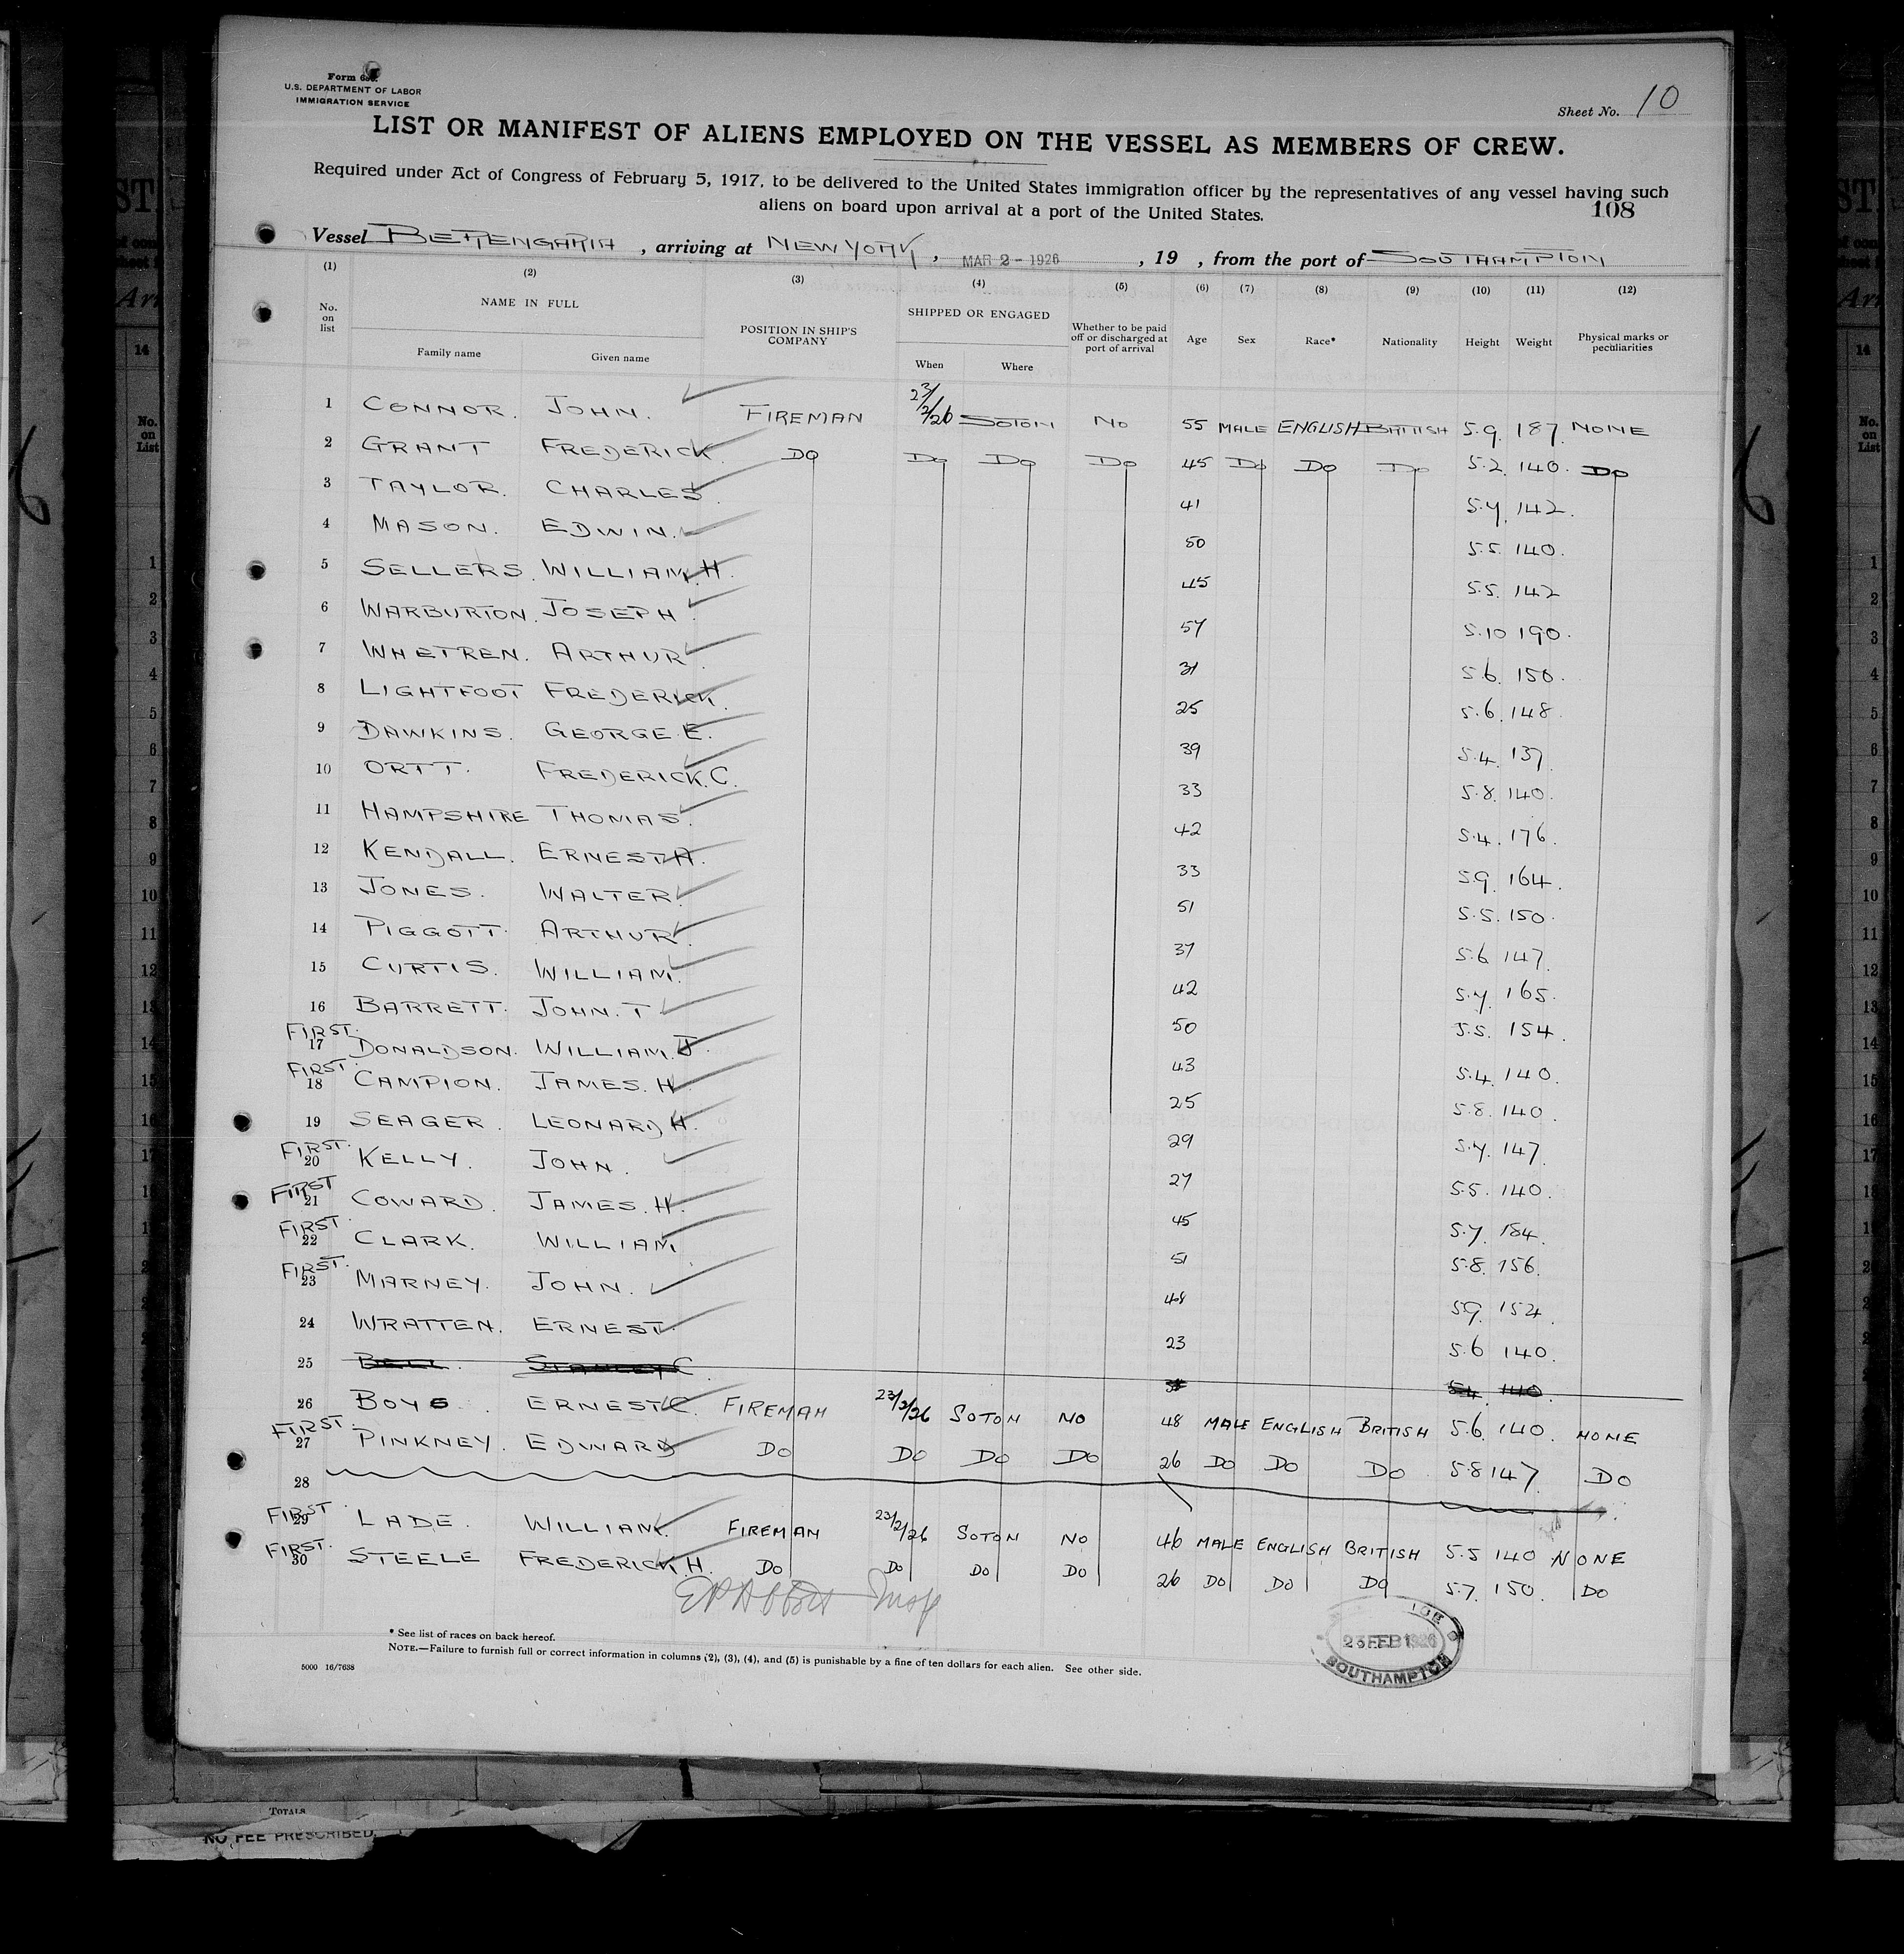 Form 680.
U.S. DEPARTMENT OF LABOR
IMMIGRATION SERVICE
Sheet No. 10
LIST OR MANIFEST OF ALIENS EMPLOYED ON THE VESSEL AS MEMBERS OF CREW.
Required under Act of Congress of February 5, 1917, to be delivered to the United States immigration officer by the representatives of any vessel having such
aliens on board upon arrival at a port of the United States.
108
Vessel BERENGARIA , arriving at NEW YORK , MAR 2 - 1926 , 19 , from the port of SOUTHAMPTON
(1) (2) (3) (4) (5) (6) (7) (8) (9) (10) (11) (12)
No. on list NAME IN FULL POSITION IN SHIP'S COMPANY SHIPPED OR ENGAGED Whether to be paid off or discharged at port of arrival Age Sex Race* Nationality Height Weight Physical marks or peculiarities
Family name Given name When Where
1 CONNOR. JOHN. FIREMAN 23/2/26 SOTON NO 55 MALE ENGLISH BRITISH 5.9. 187. NONE
2 GRANT FREDERICK DO DO DO DO 45 DO DO DO 5.2. 140. DO
3 TAYLOR. CHARLES. 41 5.7. 142.
4 MASON. EDWIN. 50 5.5. 140.
5 SELLERS. WILLIAM.H. 45 5.5. 142
6 WARBURTON. JOSEPH. 57 5.10 190.
7 WHETREN. ARTHUR. 31 5.6. 150.
8 LIGHTFOOT FREDERICK. 25 5.6. 148.
9 DAWKINS. GEORGE.E. 39 5.4. 137.
10 ORTT. FREDERICK.C. 33 5.8. 140.
11 HAMPSHIRE THOMAS. 42 5.4. 176.
12 KENDALL. ERNEST.A. 33 5.9. 164.
13 JONES. WALTER. 51 5.5. 150.
14 PIGGOTT. ARTHUR. 37 5.6 147.
15 CURTIS. WILLIAM. 42 5.7. 165.
16 BARRETT. JOHN.T 50 5.5. 154.
FIRST. 17 DONALDSON. WILLIAM.J. 43 5.4. 140.
FIRST. 18 CAMPION. JAMES.H. 25 5.8. 140.
19 SEAGER. LEONARD H. 29 5.7. 147.
FIRST. 20 KELLY. JOHN. 27 5.5. 140.
FIRST 21 COWARD. JAMES.H. 45 5.7. 184.
FIRST. 22 CLARK. WILLIAM 51 5.8. 156.
FIRST. 23 MARNEY. JOHN. 48 5.9. 152.
24 WRATTEN. ERNEST. 23 5.6 140.
25 BELL. STANLEY C. 5.4. 140.
26 BOYS. ERNEST.C. FIREMAN 23/2/26 SOTON NO 48 MALE ENGLISH BRITISH 5.6. 140. NONE
FIRST. 27 PINKNEY. EDWARD DO DO DO DO 26 DO DO DO 5.8 147. DO
28
FIRST. 29 LADE. WILLIAM. FIREMAN 23/2/26 SOTON NO 46 MALE ENGLISH BRITISH 5.5 140 NONE
FIRST. 30 STEELE FREDERICK.H. DO DO DO DO 26 DO DO DO 5.7. 150. DO
* See list of races on back hereof.
NOTE.—Failure to furnish full or correct information in columns (2), (3), (4), and (5) is punishable by a fine of ten dollars for each alien. See other side.
5000 16/7638
23 FEB 1926
SOUTHAMPTON
TOTALS
NO FEE PRESCRIBED.